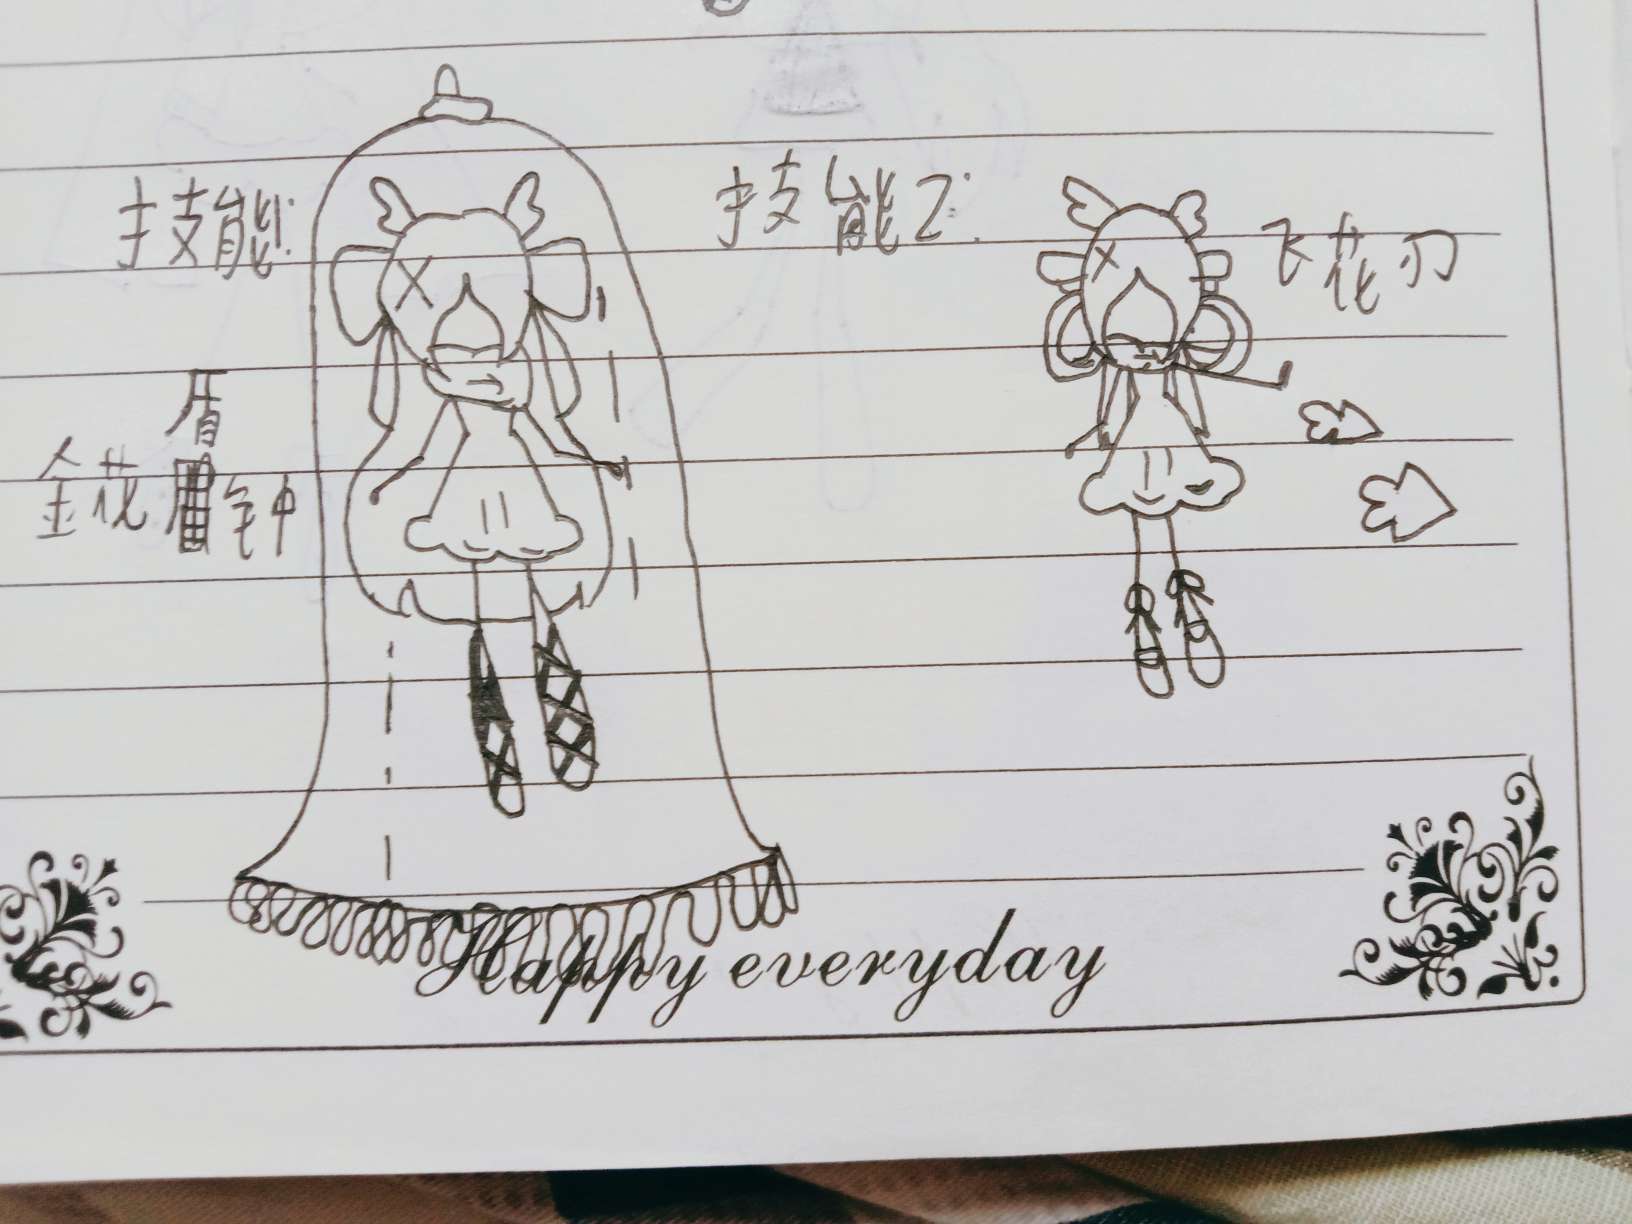 技能1:
盾
金花钟
技能2:
飞花刃
Happy everyday